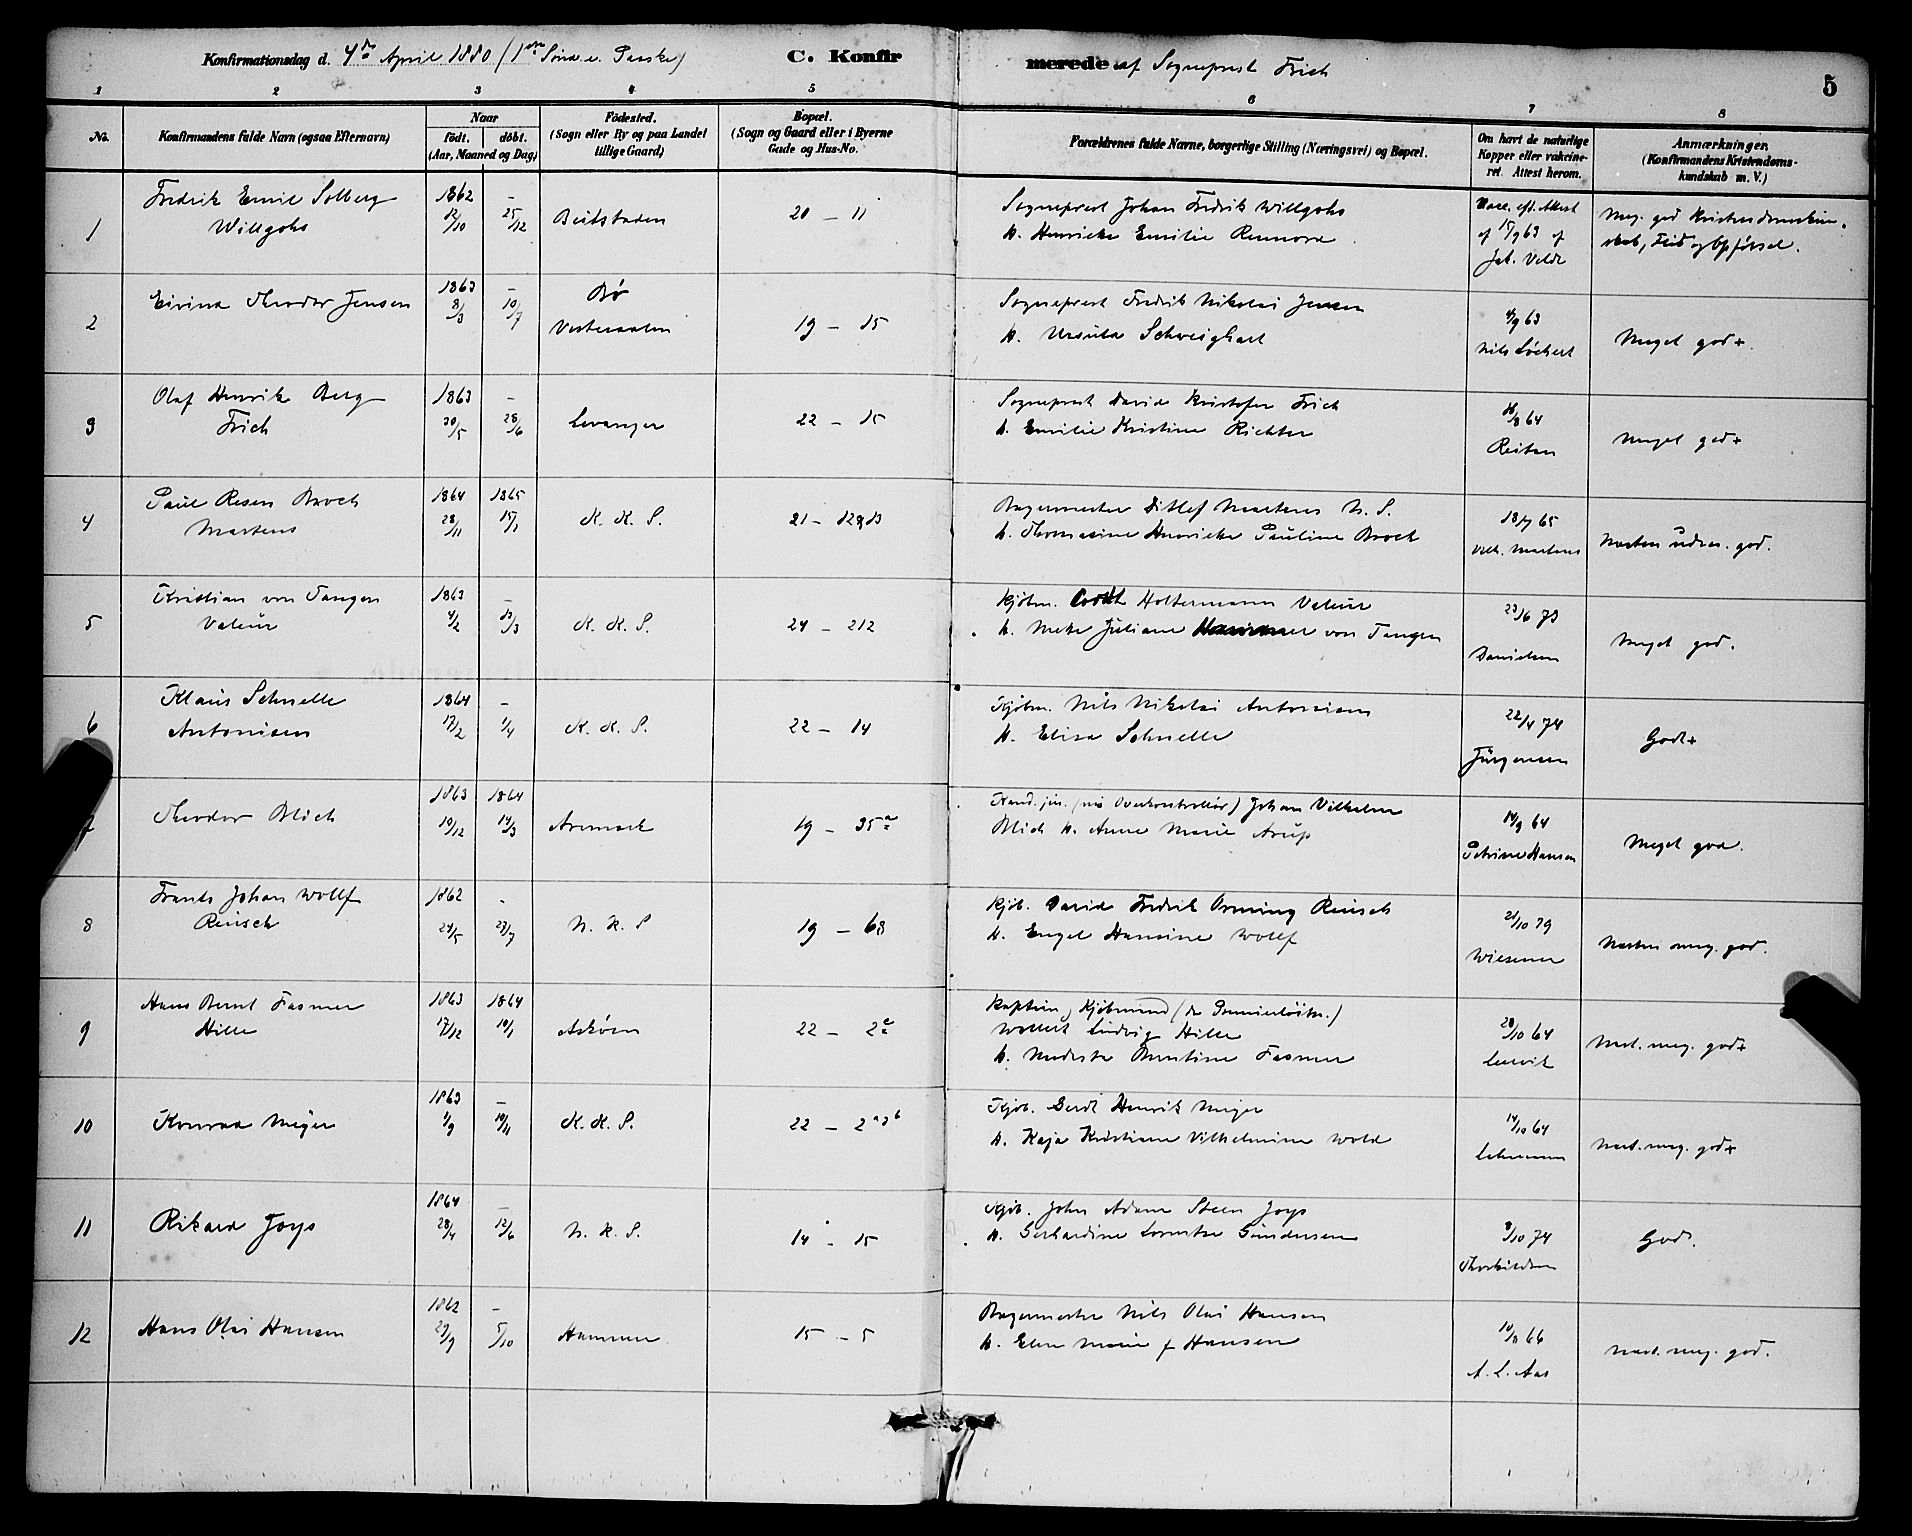 Konfirmationsdag d. 4de April 1880 (1ste Sönd. e. Paaske) C. Konfirmerede af Sogneprest Frich
5
1 2 3 4 5 6 7 8
No. Konfirmandens fulde Navn (ogsaa Efternavn) Naar födt. döbt. (Aar, Maaned og Dag) Födested. (Sogn eller By og paa Landet tillige Gaard) Bopæl. (Sogn og Gaard eller i Byerne Gade og Hus-No. Forældrenes fulde Navne, borgerlige Stilling (Næringsvei) og Bopæl. Om havt de naturlige Kopper eller vakcineret. Attest herom. Anmærkninger. (Konfirmandens Kristendomskundskab m. V.)
Fredrik Emil Solberg 1862 – Sogneprest Johan Fredrik Willgohs Vacc. eft. Attest
1 Willgohs 12/10 25/12 Beitstaden 20 – 11 H. Henrike Emilie af 15/9 63 af Meg. god Kristendomskundskab, Flid og Opførsel.
Jak. Velde
1863 –
2 Eivind Theodor Jensen 8/3 19/7 Bø Vesteraalen 19 – 15 Sogneprest Fredrik Nikolai Jensen
H. Ursula Schweighart 4/9 63 Nils Löchert Meget god+.
Olaf Henrik Berg 1863 – Sogneprest David Kristofer Frich
3 Frich 30/5 28/6 Levanger 22 – 15 H. Emilie Kristine Richter /8 64 Reitan meget god+
Paul Resen Broch 1864 1865 Bagermester Ditlef Martens N. S.
4 Martens 28/11 15/1 K. K. S. 21 – 12&13 H. Thomasine Henrikke Pauline Broch 18/7 65 Vilh. Martens Næsten udm. god.
Kristian von Tangen 1863 – Kjöbm. Holtermann Valeur
5 Valeur 4/2 13/3 K. K. S. 24 – 212 H. Meta Juliane von Tangen 23/6 73 Danielsen meget god.
Klaus Schnelle 1864 – Kjöbm. Nils Nikolai Antonisen
6 Antonisen 17/2 1/4 K. K. S. 22 – 14 H. Elisa Schnelle 22/4 74 Jürgensen God+
1863 1864 Kand. jur. (nu Overkontrollör) Johan Vilhelm
7 Theodor Blich 19/12 14/3 Aremark 19 – 35a Blich H. Anne Marie Arup 14/9 64 Petrine Hansen Meget god.
Frants Johan Wolff 1862 – Kjöb. David Fredrik Orning Reusch
8 Reusch 24/5 27/7 N. K. S 19 – 63 H. Engel Hansine Wolff 21/10 79 Wiesener Næsten meg. god.
Hans Bernt Fasmer 1863 1864 Kaptein, Kjöbmand (da Premierlöitn.)
9 Hille 17/12 10/1 Asköen 22 – 2c Wollert Ludvig Hille
H. Modesta Berntine Fasmer 28/10 64 Leervik næst. meg. god+
1863 –
10 Konrad Meyer 1/9 19/11 K. K. S. 22 – 2a3b Kjöb. Gerdt Henrik Meyer
H. Kaja Kristiane Vilhelmine Wold 14/10 64 Lehmann næst. meg. god+
1864 – Kjöb. John Adam Steen Joys
11 Rikard Joys 28/4 12/6 N. K. S. 14 – 15 H. Gerhardine Lorentze Gundersen 8/10 74 Thorkildsen God.
1862 – Bagermester Nils Olai Hansen
12 Hans Olai Hansen 29/9 5/10 Hammer 15 – 5 H. Elen Marie f Hansen 10/8 66 A. L. Aas næst. meg. god.